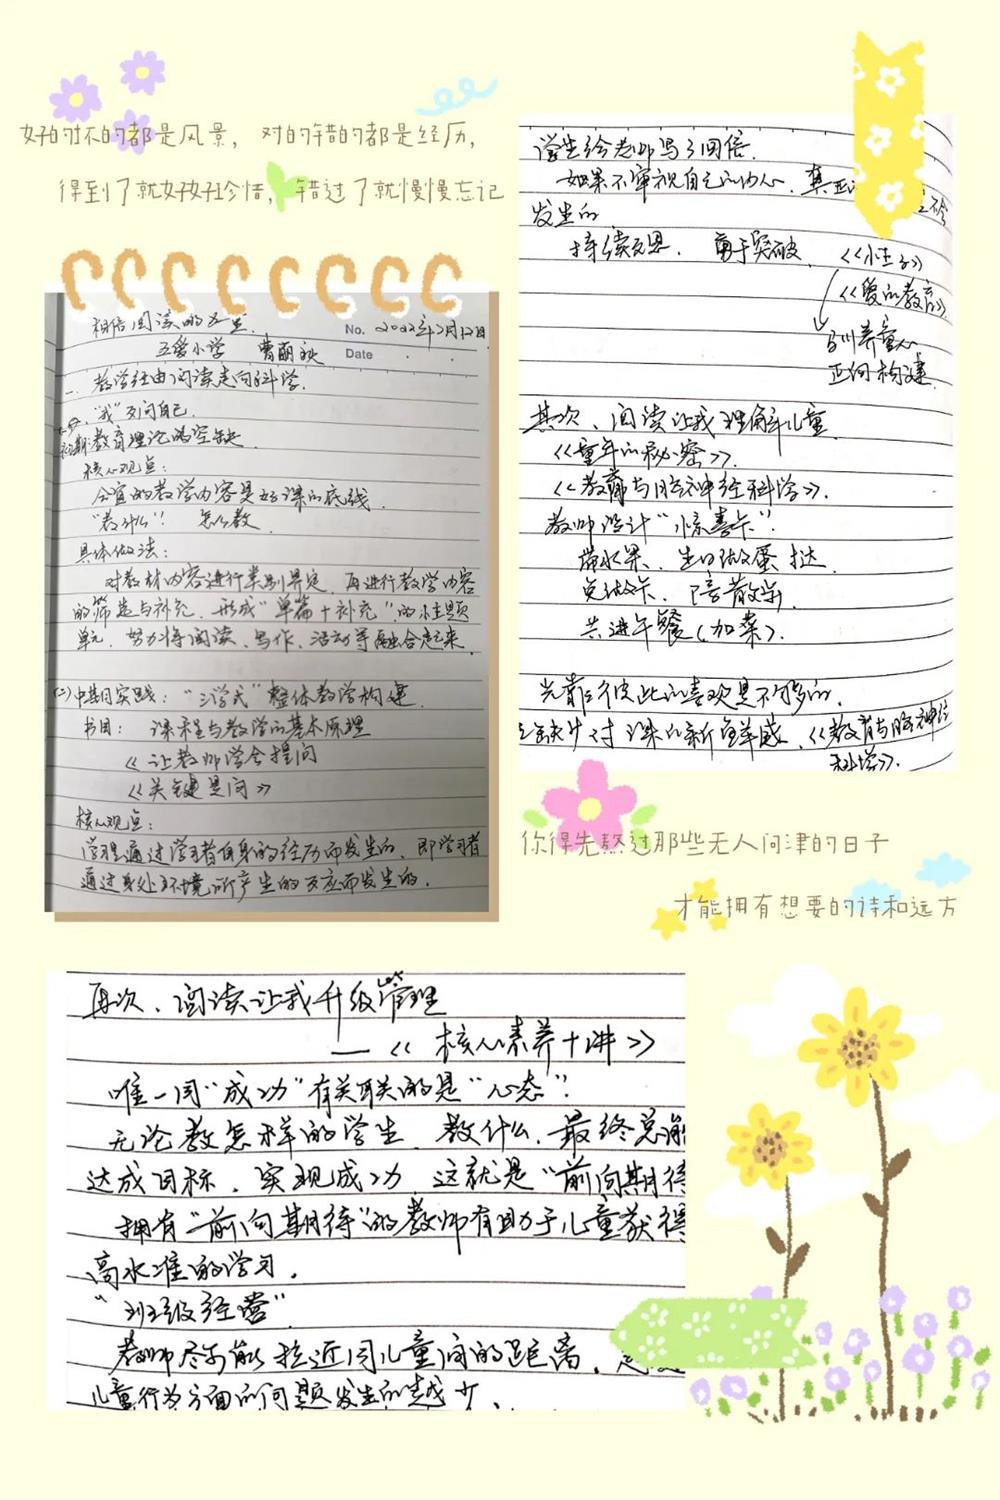 好的坏的都是风景，对的错的都是经历，
得到了就好好珍惜，错过了就慢慢忘记
相信阅读的力量.
No. 2022年7月12日
五爱小学 曹丽秋
Date
一、教学经由阅读走向科学.
"我"反问自己.
初期:教育理论的空缺
核心观点:
合宜的教学内容是好课的底线
"教什么"? 怎么教
具体做法:
对教材内容进行类别界定,再进行教学内容
的筛选与补充.形成"单篇+补充"的小主题
单元.努力将阅读、写作、活动等融合起来.
(二)中期实践:"三学式"整体教学构建
书目: 课程与教学的基本原理
《让教师学会提问
《关键提问》
核心观点:
学习是通过学习者自身的经历而发生的,即学习者
通过身处环境所产生的反应而发生的.
学生给老师写了回信.
如果不审视自己的内心,
发生的
持续反思. 勇于突破. 《小王子》
《爱的教育》
驯养童心
正向构建
其次,阅读让我理解儿童
《童年的秘密》.
《教育与脑神经科学》.
教师设计"惊喜卡".
带水果、生日做蛋挞
免做卡、陪散学
共进午餐(加菜).
光靠彼此的喜欢是不够的
缺少对课的新鲜感.《教育与脑神经
科学》.
你得先熬过那些无人问津的日子
才能拥有想要的诗和远方
再次、阅读让我升级管理
——《核心素养十讲》
唯一同"成功"有关联的是"心态".
无论教怎样的学生、教什么,最终总能
达成目标、实现成功 这就是"前向期待
拥有"前向期待"的教师有助于儿童获得
高水准的学习.
"班级经营"
教师尽可能拉近同儿童间的距离,
儿童行为方面的问题发生的越少.